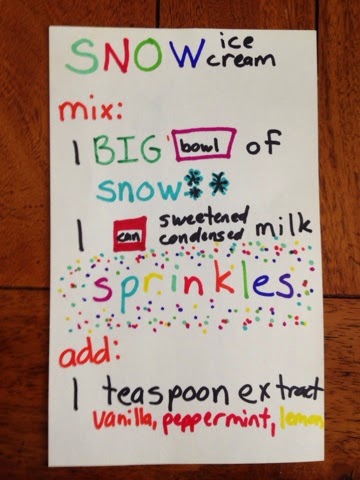 SNOW ice cream
mix:
1 BIG bowl of
snow
1 can sweetened condensed milk
sprinkles
add:
1 teaspoon extract
vanilla, peppermint, lemon